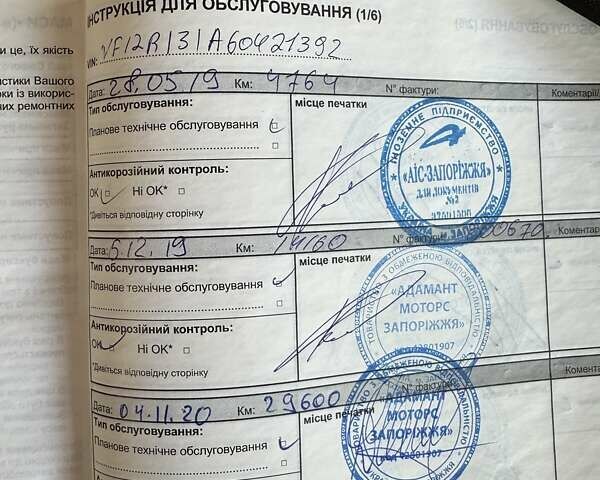 НСТРУКЦІЯ ДЛЯ ОБСЛУГОВУВАННЯ (1/6)
и це, їх якість
VIN: VF12R131A60421392
истики Вашого
оки із викорис-
них ремонтних
Дата: 28.05.19 Км: 4764 N° фактури: Коментарії/
Тип обслуговування: місце печатки
Планове технічне обслуговування
ІНОЗЕМНЕ ПІДПРИЄМСТВО
«АІС-ЗАПОРІЖЖЯ»
ДЛЯ ДОКУМЕНТІВ
№2
Антикорозійний контроль:
OK Ні OK*
*Дивіться відповідну сторінку
Дата: 6.12.19 Км: 14160 N° фактури: Коментар
Тип обслуговування: місце печатки
Планове технічне обслуговування
ТОВАРИСТВО З ОБМЕЖЕНОЮ ВІДПОВІДАЛЬНІСТЮ
«АДАМАНТ
МОТОРС
ЗАПОРІЖЖЯ»
код 42801907
Антикорозійний контроль:
OK Ні OK*
*Дивіться відповідну сторінку
Дата: 04.11.20 Км: 29600 N° фактури: Комента
Тип обслуговування: місце печатки
Планове технічне обслуговування
«АДАМАНТ
МОТОРС
ЗАПОРІЖЖЯ»
код 42801907
Антикорозійний контроль: